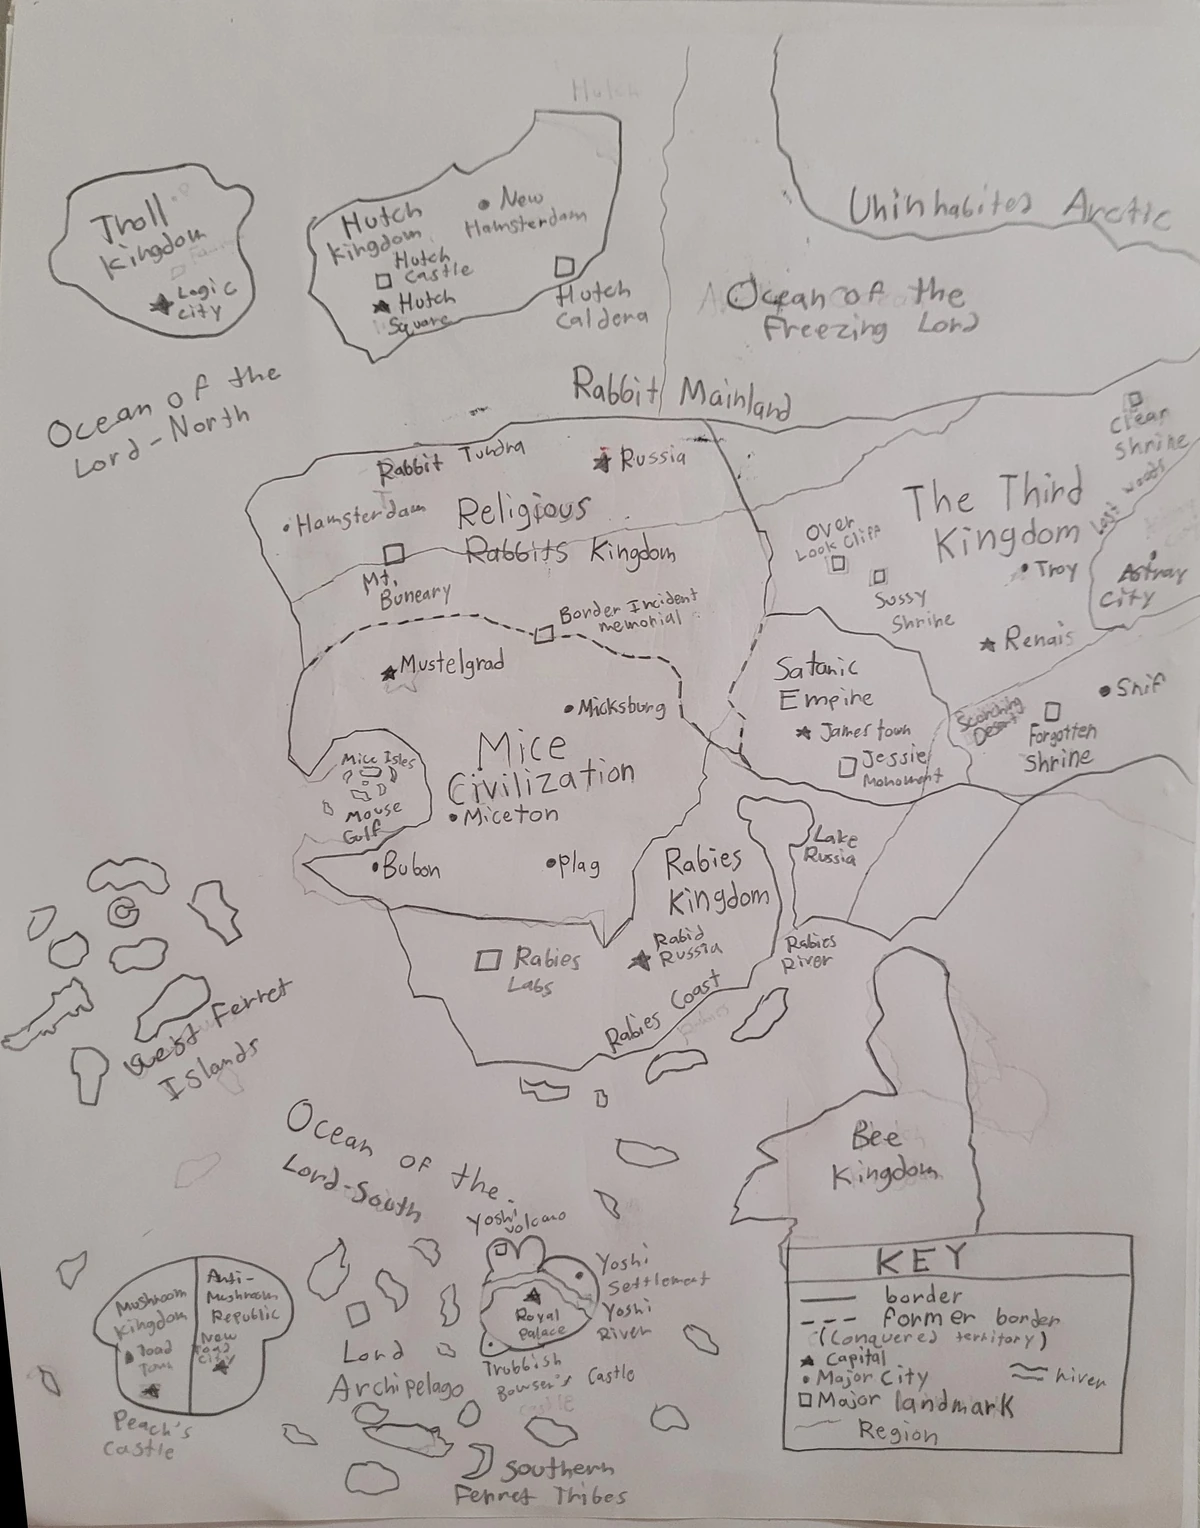 Hutch
Troll
Kingdom
Logic
city
Hutch
Kingdom
New
Hamsterdam
Hutch
Castle
Hutch
Square
Hutch
Caldera
Uninhabited Arctic
Ocean of the
Freezing Lord
Ocean of the
Lord-North
Rabbit Mainland
Rabbit Tundra
Russia
Hamsterdam
Religious
Rabbits Kingdom
Mt.
Buneary
Border Incident
memorial
Clear
Shrine
The Third
Kingdom
Lost woods
Over
Look Cliff
Sussy
Shrine
Troy
Astray
City
Renais
Satanic
Empire
Jamestown
Jessie
Monument
Scorching
Desert
Forgotten
Shrine
Shif
Mustelgrad
Micksburg
Mice
Civilization
Miceton
Mice Isles
Mouse
Gulf
Bubon
Plag
Rabies
Kingdom
Lake
Russia
Rabies
Labs
Rabid
Russia
Rabies
River
Rabies Coast
Rabies
West Ferret
Islands
Ocean of the
Lord-South
Bee
Kingdom
Yoshi
volcano
Yoshi
Settlement
Yoshi
River
Royal
Palace
Trubbish
Bowser's Castle
Castle
Mushroom
Kingdom
Toad
Town
Peach's
Castle
Anti-
Mushroom
Republic
New
Toad
City
Lord
Archipelago
Southern
Ferret Tribes
KEY
border
former border
(Conquered territory)
Capital
Major City
river
Major landmark
Region